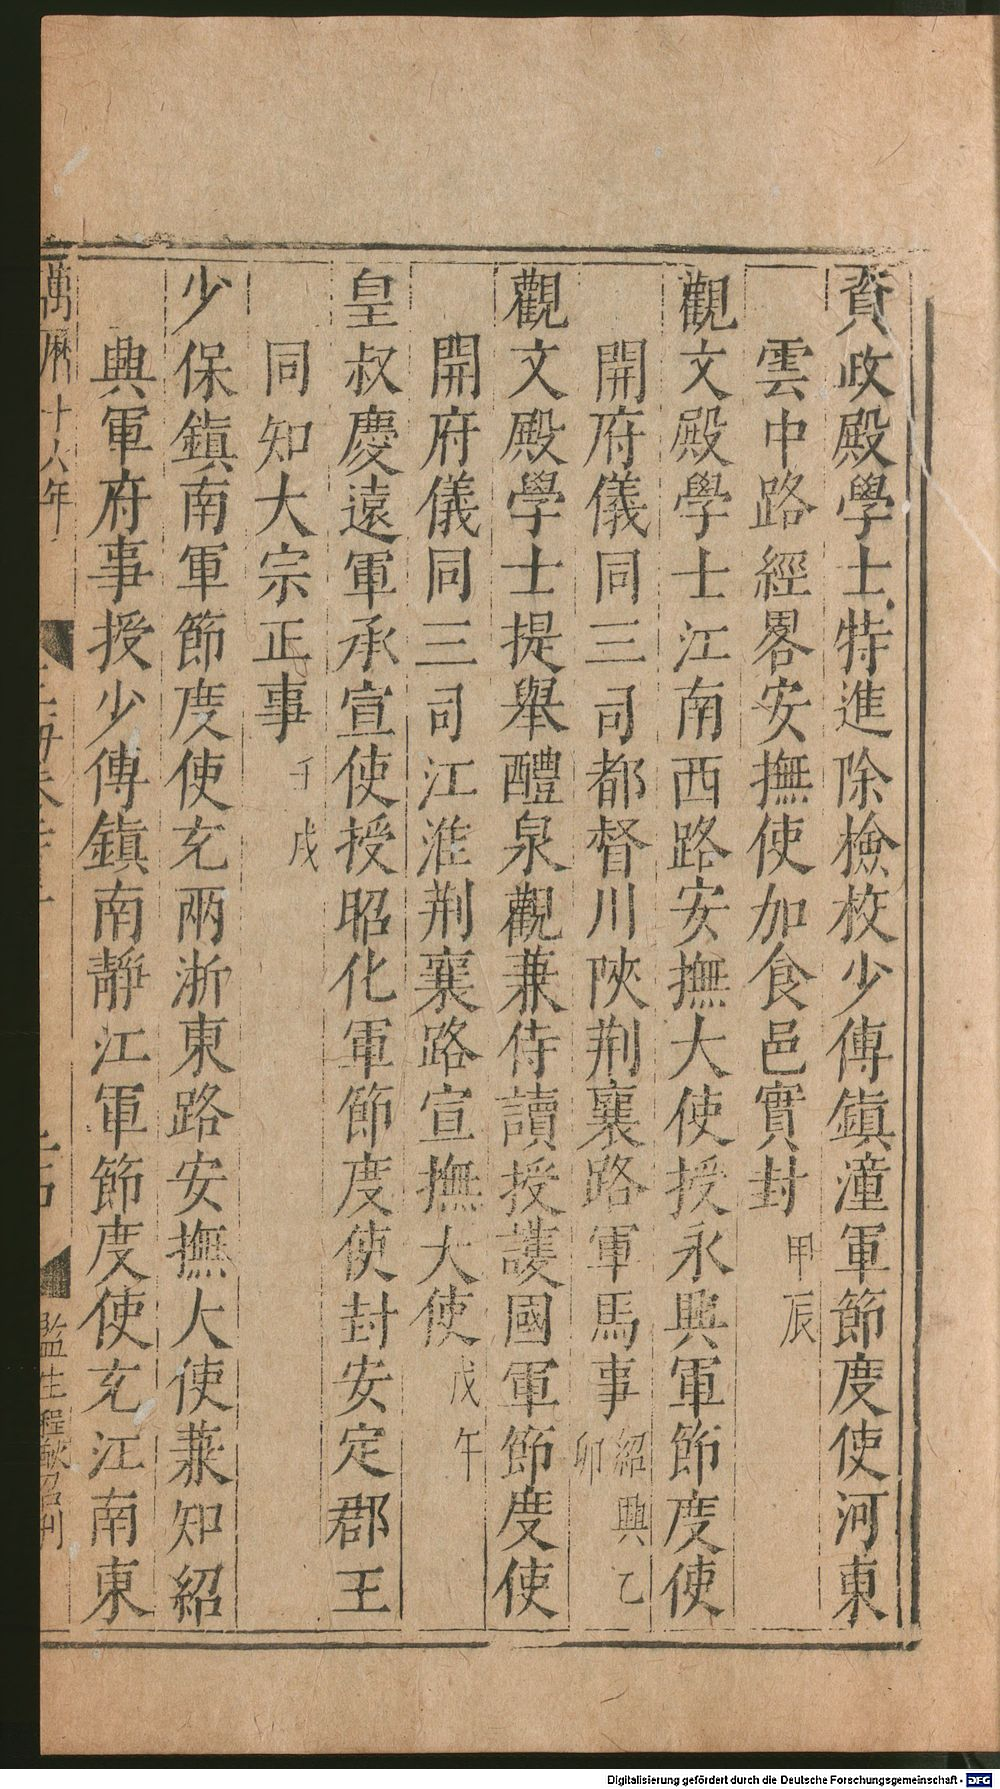 資政殿學士特進除檢校少傅鎮潼軍節度使河東
雲中路經畧安撫使加食邑實封甲辰
觀文殿學士江南西路安撫大使授永興軍節度使
開府儀同三司都督川陝荆襄路軍馬事紹興乙卯
觀文殿學士提舉醴泉觀兼侍讀授護國軍節度使
開府儀同三司江淮荆襄路宣撫大使戊午
皇叔慶遠軍承宣使授昭化軍節度使封安定郡王
同知大宗正事壬戌
少保鎮南軍節度使充兩浙東路安撫大使兼知紹
興軍府事授少傅鎮南靜江軍節度使充江南東
萬厤十六年
監生程
刊
Digitalisierung gefördert durch die Deutsche Forschungsgemeinschaft - DFG